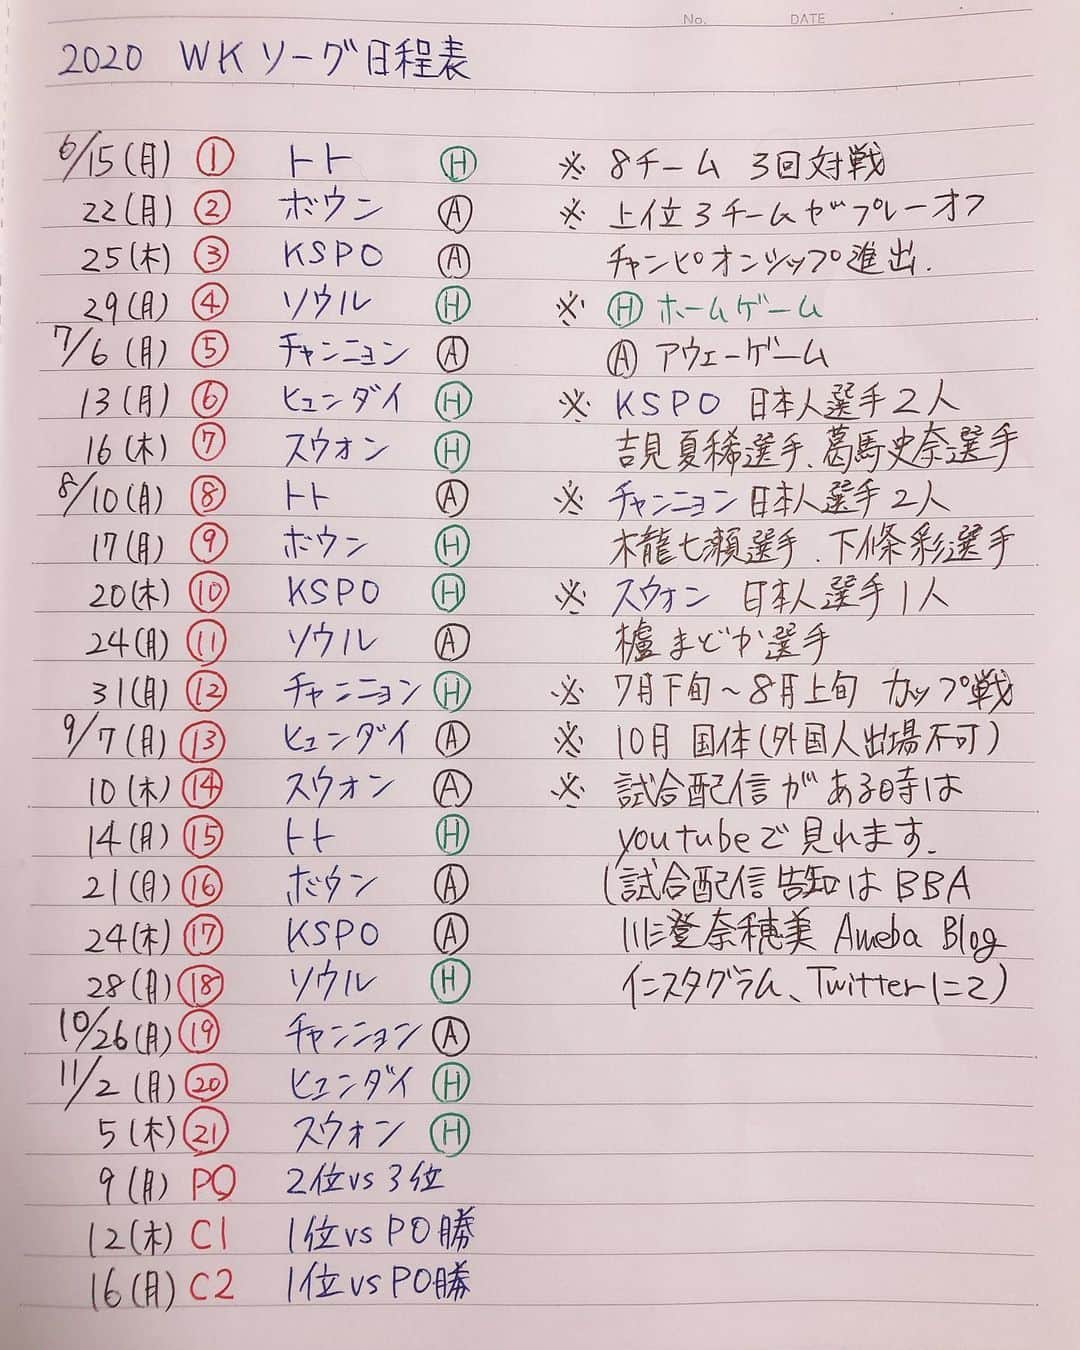 No.
DATE
2020 WKリーグ日程表
6/15(月) ① トト Ⓗ ※ 8チーム 3回対戦
22(月) ② ボウン Ⓐ ※ 上位3チームがプレーオフ
25(木) ③ KSPO Ⓐ チャンピオンシップ進出.
29(月) ④ ソウル Ⓗ ※ Ⓗ ホームゲーム
7/6(月) ⑤ チャンニョン Ⓐ Ⓐ アウェーゲーム
13(月) ⑥ ヒュンダイ Ⓗ ※ KSPO 日本人選手2人
16(木) ⑦ スウォン Ⓗ 吉見夏稀選手、葛馬史奈選手
8/10(月) ⑧ トト Ⓐ ※ チャンニョン日本人選手2人
17(月) ⑨ ボウン Ⓗ 木龍七瀬選手、下條彩選手
20(木) ⑩ KSPO Ⓗ ※ スウォン 日本人選手1人
24(月) ⑪ ソウル Ⓐ 櫨まどか選手
31(月) ⑫ チャンニョン Ⓗ ※ 7月下旬～8月上旬 カップ戦
9/7(月) ⑬ ヒュンダイ Ⓐ ※ 10月 国体(外国人出場不可)
10(木) ⑭ スウォン Ⓐ ※ 試合配信がある時は
14(月) ⑮ トト Ⓗ youtubeで見れます.
21(月) ⑯ ボウン Ⓐ (試合配信告知は BBA
24(木) ⑰ KSPO Ⓐ 川澄奈穂美 Ameba Blog
28(月) ⑱ ソウル Ⓗ インスタグラム、Twitterにて)
10/26(月) ⑲ チャンニョン Ⓐ
11/2(月) ⑳ ヒュンダイ Ⓗ
5(木) ㉑ スウォン Ⓗ
9(月) PO 2位vs3位
12(木) C1 1位vsPO勝
16(月) C2 1位vsPO勝